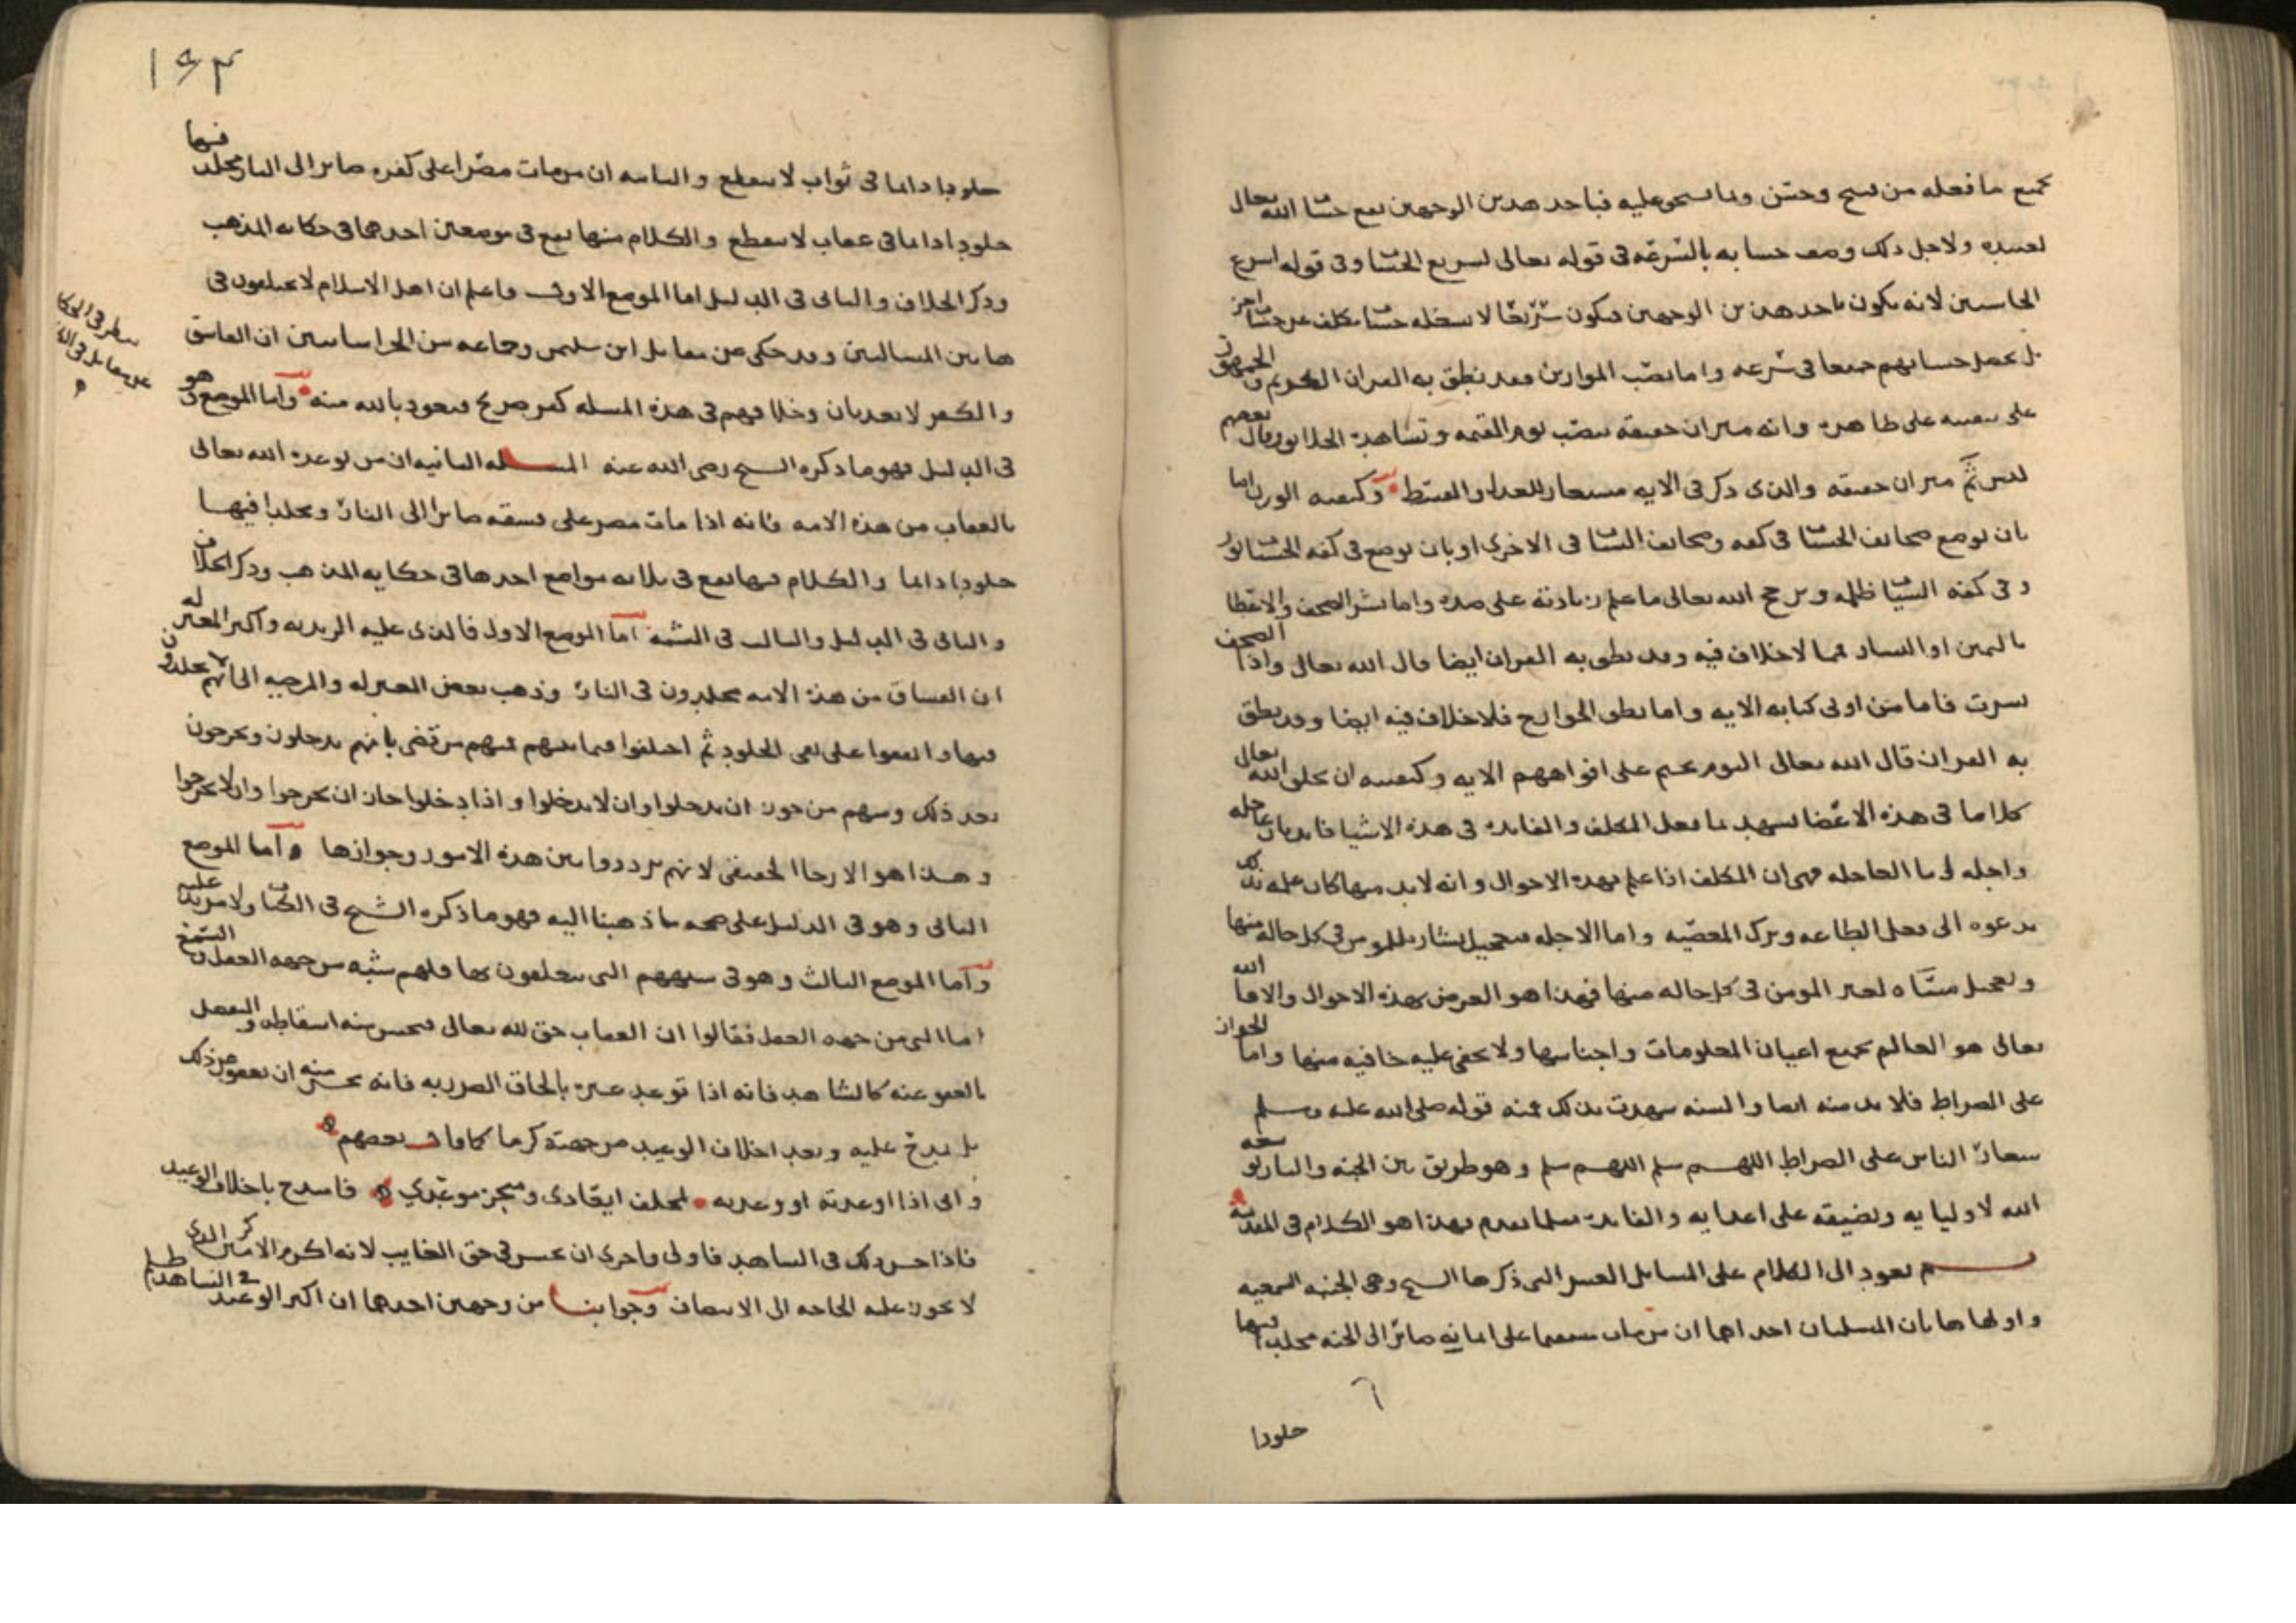 بجميع ما فعله من قبيح وحسن وما يستحق عليه فباحد هدين الوجهين يقع حساب الله تعالى
لعبيده ولاجل ذلك وصف حسابه بالسرعة في قوله تعالى لسريع الحساب وفي قوله اسرع
الحاسبين لانه يكون باحد هذين الوجهين فيكون سريعًا لا يشغله حساب مكلف عن حساب اخر
بل يحصل حسابهم جميعا في سرعه واما نصب الموازين فقد نطق به القران الكريم والجمهور
على تبقيته على ظاهره وانه ميزان حقيقة ينصب يوم القيمه وتشاهده الخلائق وقال بعضهم
ليس ثَمَّ ميزان حقيقه والذي ذكر في الايه مستعار للعدل والقسط وكيفيه الوزن اما
بان توضع صحائف الحسنات في كفه وصحائف السيئات في الاخرى او بان يوضع في كفه الحسنات نور
وفي كفه السيئات ظلمه ويرجح الله تعالى ما علم زيادته على ضده واما نشر الصحف والاعطا
باليمين او اليسار فمما لا خلاف فيه وقد نطق به القران ايضا قال الله تعالى واذا الصحف
نشرت فاما من اوتي كتابه الايه واما نطق الجوارح فلا خلاف فيه ايضا وقد نطق
به القران قال الله تعالى اليوم نختم على افواههم الايه وكيفيته ان يخلق الله تعالى
كلاما في هذه الاعضا يشهد بما فعل المكلف والفائدة في هذه الاشيا فائدتان عاجله
واجله اما العاجله فهي ان المكلف اذا علم بهذه الاحوال وانه لا بد منها كان علمه بذلك
يدعوه الى فعل الطاعه وترك المعصيه واما الاجله فتعجيل بشارة للمومن في كل حالة منها
وتعجيل مسّاه لغير المومن في كل حاله منها فهذا هو الغرض بهذه الاحوال والا فالله
تعالى هو العالم بجميع اعيان المعلومات واجناسها ولا يخفى عليه خافيه منها واما الجواز
على الصراط فلا بد منه ايضا والسنه شهدت بذلك فمنه قوله صلى الله عليه وسلم
شعار الناس على الصراط اللهم سلم اللهم سلم وهو طريق بين الجنه والنار يوسعه
الله لاوليايه ويضيقه على اعدايه والفائدة مثلما تقدم فهذا هو الكلام في المقدمة
ثم نعود الى الكلام على المسايل العشر التي ذكرها الشيخ وهي الجنبه السمعيه
واولها هاتان المسلتان احداهما ان من مات مستقيما على ايمانه صائر الى الجنه مخلد فيها
خلودا
١٦٣
خلودا دائما في ثواب لا ينقطع والثانيه ان من مات مصّرا على كفره صائر الى النار مخلد فيها
خلودا دائما في عقاب لا ينقطع والكلام منهما يقع في موضعين احدهما في حكايه المذهب
وذكر الخلاف والثاني في الدليل اما الموضع الاول فاعلم ان اهل الاسلام لا يختلفون في
هاتين المسالتين وقد حكي عن مقاتل ابن سليمن وجماعه من الخراسانيين ان الفاسق
والكفر لا يعذبان وخلافهم في هذه المسله كفر صريح فنعوذ بالله منه واما الموضع وهو
في الدليل فهو ما ذكره الشيخ رضي الله عنه المسله الثانيه ان من توعده الله تعالى
بالعقاب من هذه الامه فانه اذا مات مصر على فسقه صائرا الى النار ومخلدا فيها
خلودا دائما والكلام فيها يقع في ثلاثه مواضع احدها في حكايه المذهب وذكر الخلاف
والثاني في الدليل والثالث في الشبه اما الموضع الاول فالذي عليه الزيديه واكثر المعتزله
ان الفساق من هذه الامه مخلدون في النار وذهب بعض المعتزله والمرجيه الى انهم لا يخلدون
فيها واتفقوا على نفي الخلود ثم اختلفوا فيما بينهم فمنهم من قضى بانهم يدخلون ويخرجون
بعد ذلك ومنهم من جوز ان يدخلوا وان لا يدخلوا واذا دخلوا جاز ان يخرجوا وان لا يخرجوا
وهذا هو الارجا الحقيقي لانهم ترددوا بين هذه الامور وجوازها واما الموضع
الثاني وهو في الدليل على صحه ما ذهبنا اليه فهو ما ذكره الشيخ في الكتاب ولا مزيد عليه
واما الموضع الثالث وهو في شبههم التي يتعلقون بها فلهم شبه من جهه العقل والسمع
اما التي من جهه العقل فقالوا ان العقاب حق لله تعالى فيحسن منه اسقاطه والتفضل
بالعفو عنه كالشاهد فانه اذا توعد غيره بالحاق الضرر به فانه يحسن منه ان يعفو عن ذلك
بل يمدح عليه ويعد اخلاف الوعيد من جهته كرما كما قال بعضهم
واني اذا اوعدته او وعدته لمخلف ايعادي ومنجز موعدي فامتدح باخلاف الوعيد
فاذا حسن ذلك في الشاهد فاولى واحرى ان يحسن في حق الغايب لانه اكرم الاكرمين الذي
لا يجوز عليه الحاجه الى الانتصاف وجوابنا من وجهين احدهما ان اكثر الوعيد في الشاهد ظلم